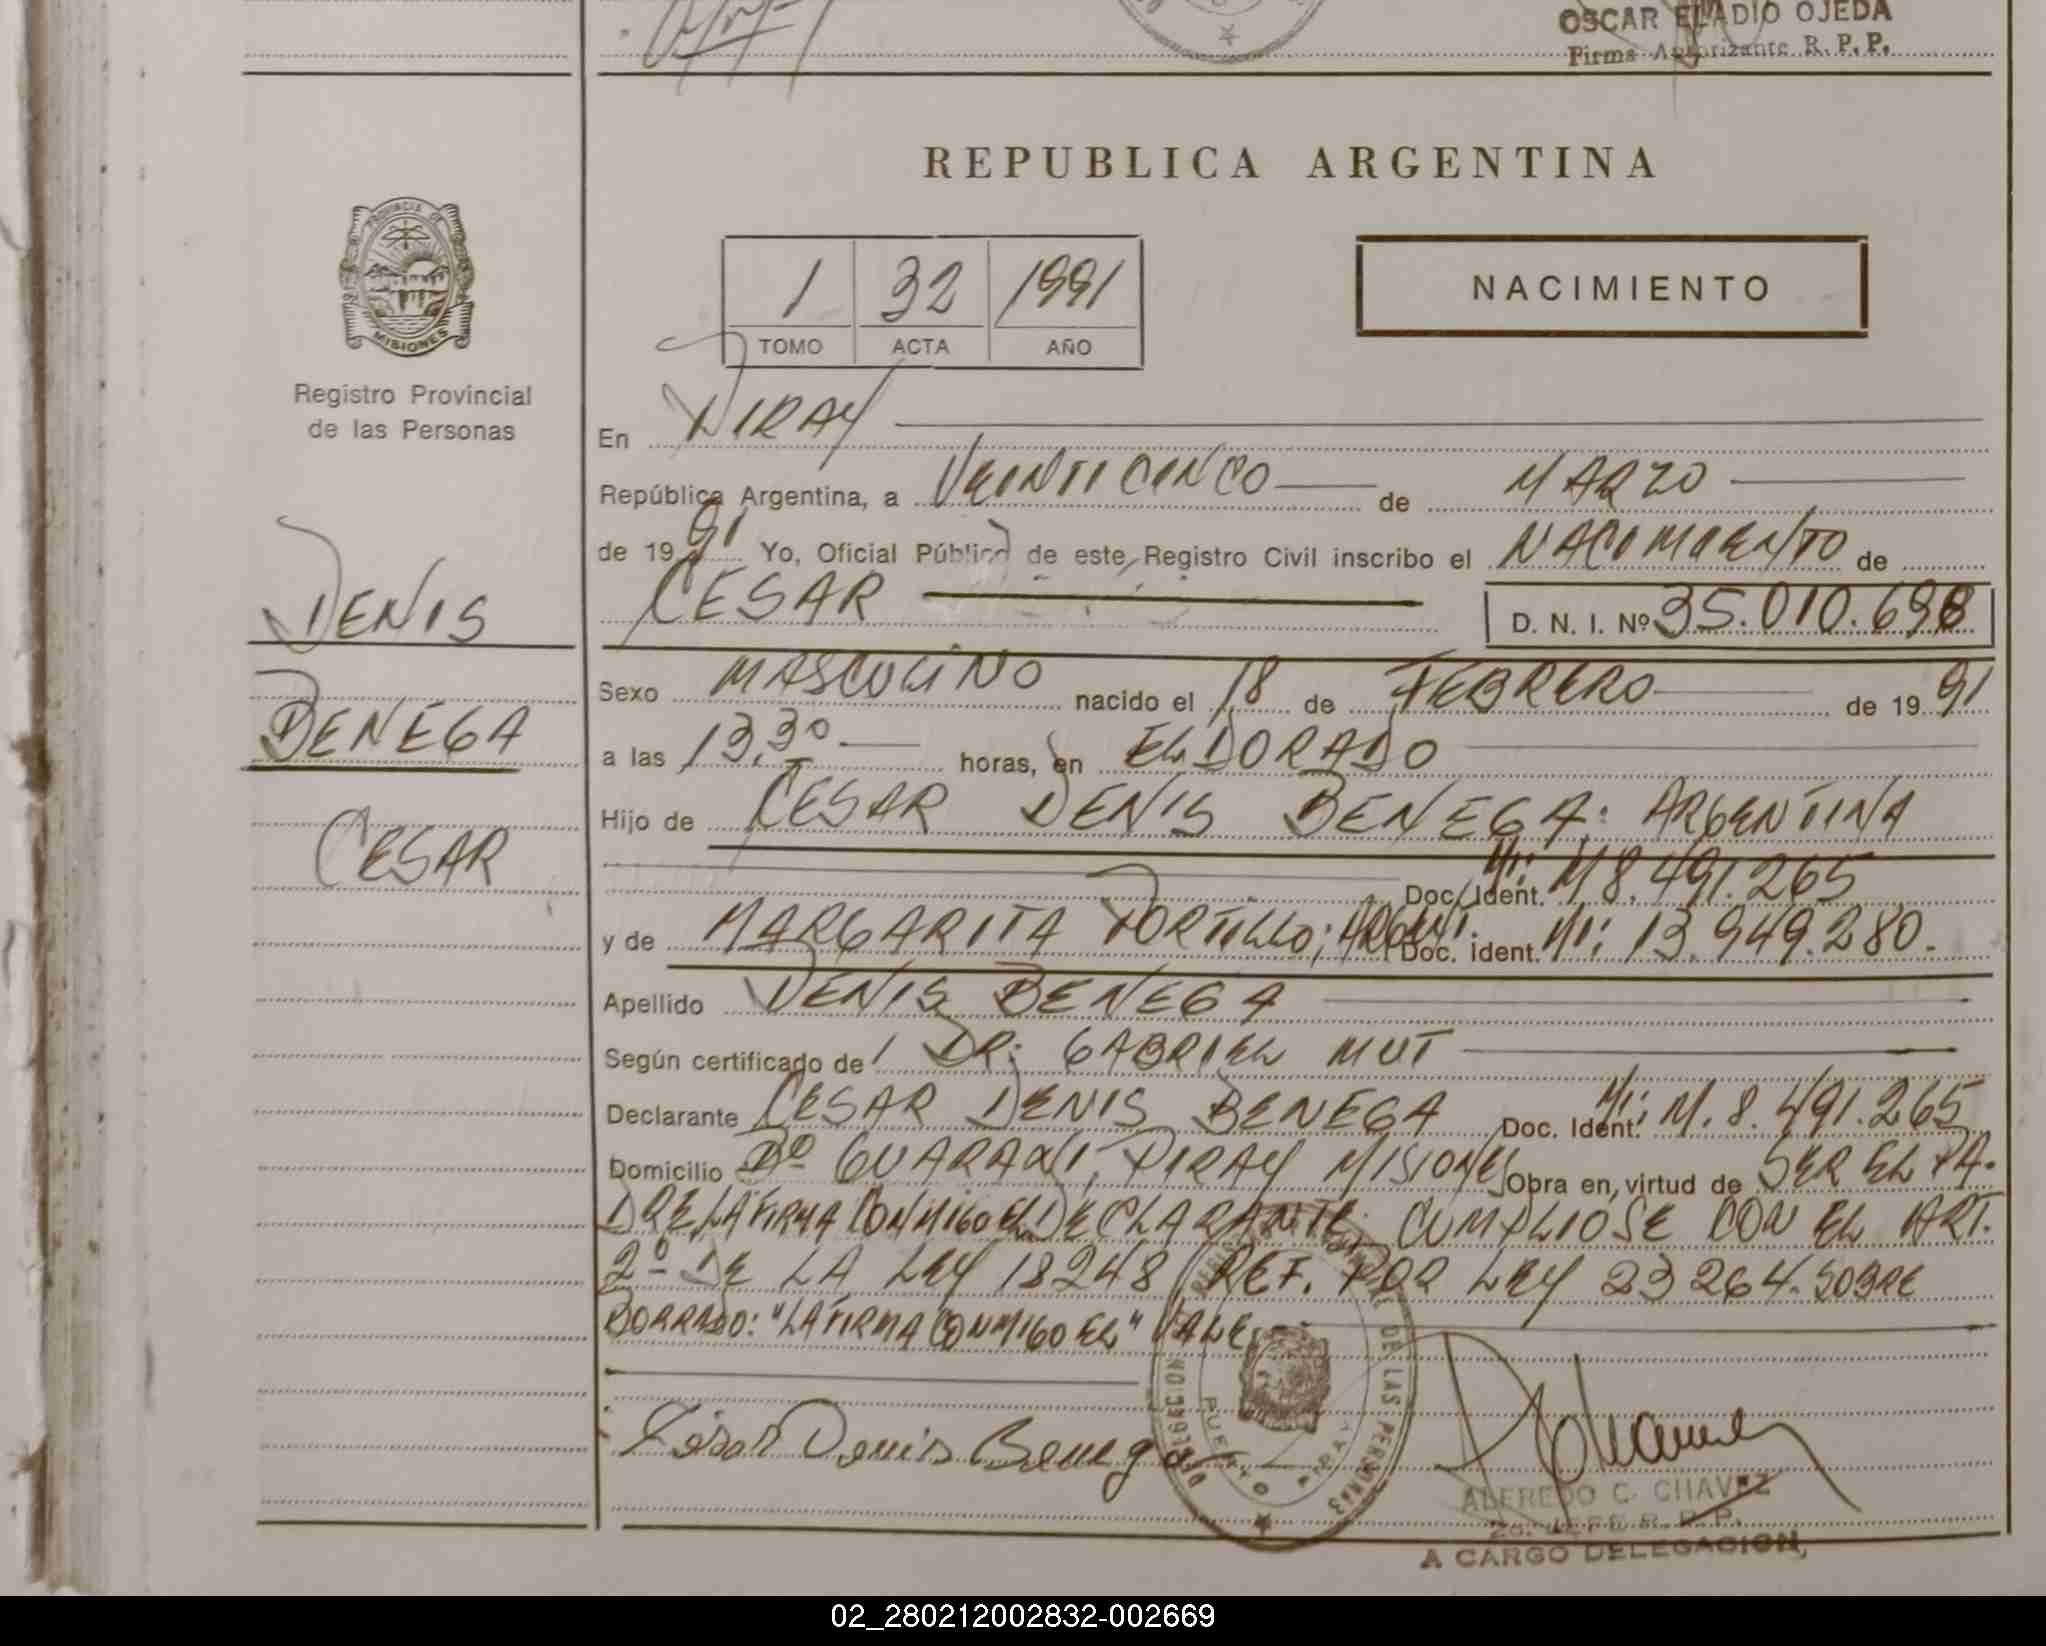 OSCAR ELADIO OJEDA
Firma Autorizante R. P. P.
REPUBLICA ARGENTINA
PROVINCIA DE
MISIONES
Registro Provincial
de las Personas
1 32 1991
TOMO ACTA AÑO
NACIMIENTO
En PIRAY
República Argentina, a VEINTICINCO de MARZO
de 1991 Yo, Oficial Público de este Registro Civil inscribo el NACIMIENTO de
CESAR D. N. I. Nº 35.010.698
DENIS
BENEGA
CESAR
Sexo MASCULINO nacido el 18 de FEBRERO de 1991
a las 13,30 horas, en ELDORADO
Hijo de CESAR DENIS BENEGA: ARGENTINA
Doc. Ident. MI: M 8.491.265
y de MARGARITA PORTILLO; ARGENT. Doc. ident. MI: 13.949.280.
Apellido DENIS BENEGA
Según certificado de DR: GABRIEL MUT
Declarante CESAR DENIS BENEGA Doc. Ident. MI: M. 8.491.265
Domicilio Bº GUARANI, PIRAY MISIONES Obra en virtud de SER EL PA-
DRE LA FIRMA CONMIGO EL DECLARANTE. CUMPLIOSE CON EL ART.
2º DE LA LEY 18248 REF. POR LEY 23264. SOBRE
BORRADO: "LA FIRMA CONMIGO EL" VALE
César Denis Benega
DELEGACION PUERTO PIRAY
DE LAS PERSONAS
ALFREDO C. CHAVEZ
2do. JEFE R. P. P.
A CARGO DELEGACION,
02_280212002832-002669